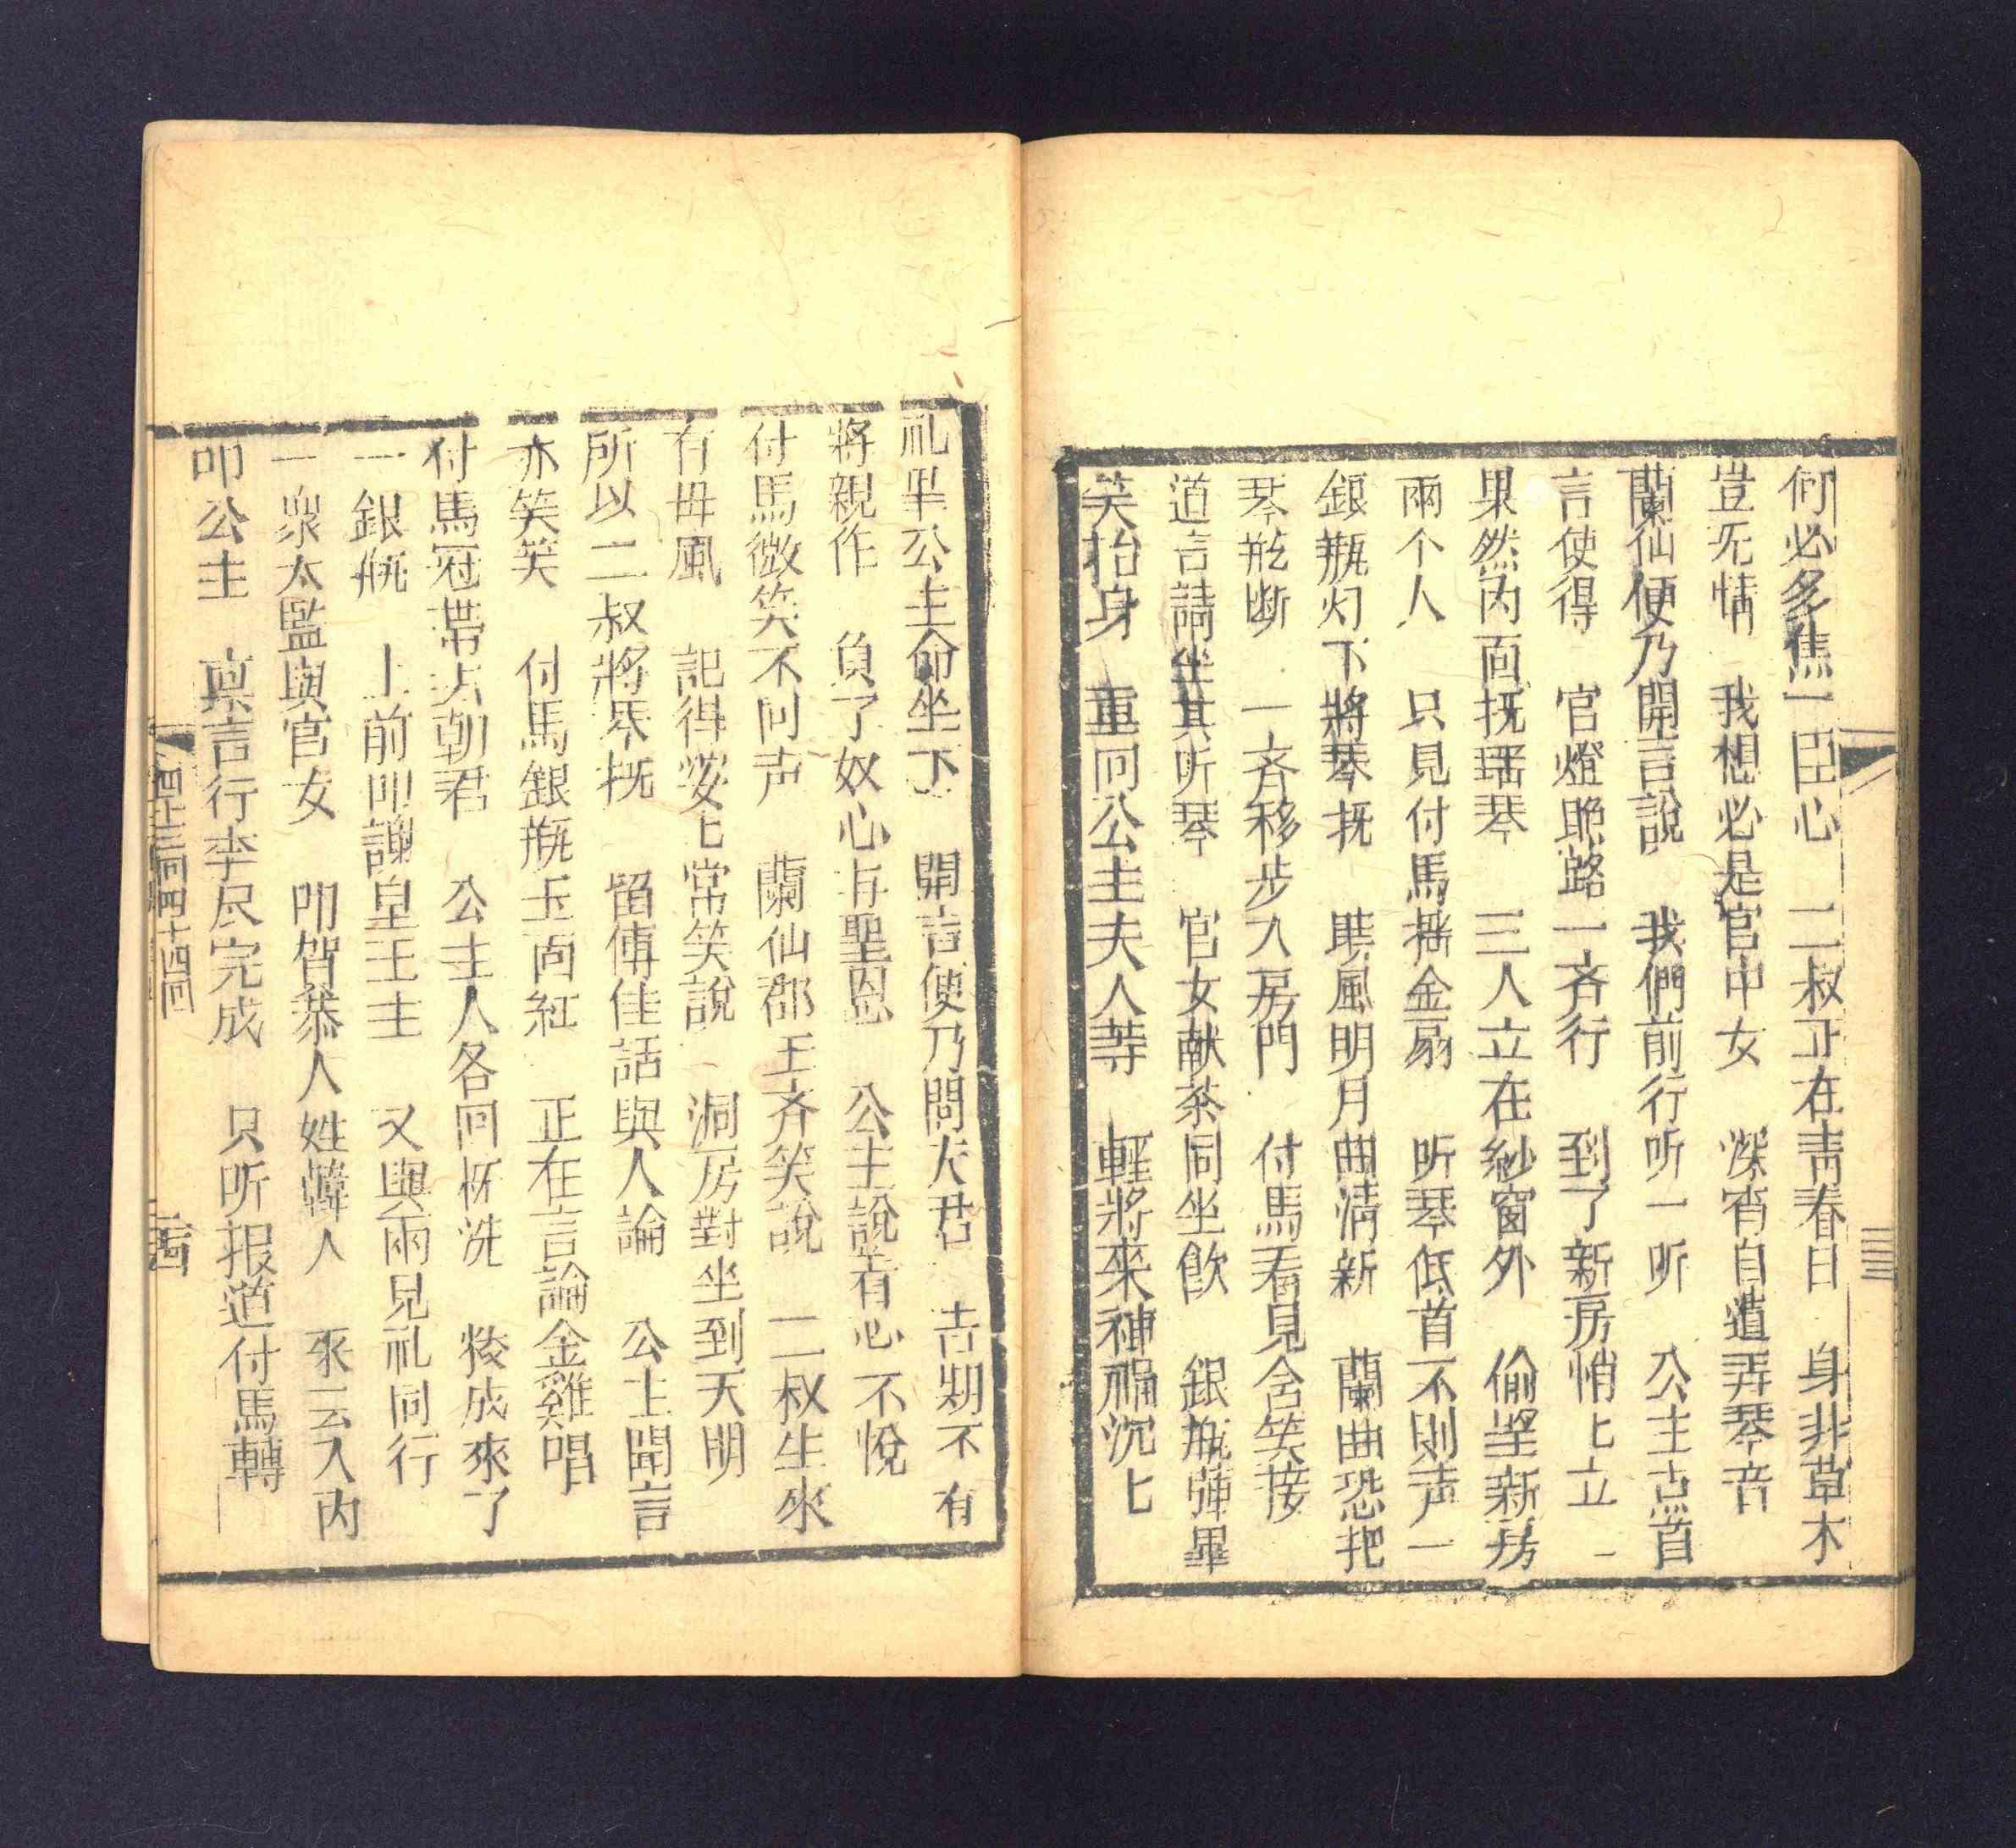 何必多焦一旦心　二叔正在青春日　身非草木
豈旡情　我想必是官中女　深宵自遣弄琴音
蘭仙便乃開言說　我們前行听一听　公主点首
言使得　官燈照路一斉行　到了新房悄七立
果然內面抚瑶琴　三人立在紗窗外　偷望新房
兩个人　只見付馬揺金扇　听琴低首不則声一
銀瓶灯下將琴抚　晴風明月曲清新　蘭曲恐把
琴断　一斉移步入房門　付馬看見含笑接
道言請坐其听琴　官女献茶同坐飲　銀瓶弹畢
笑抬身　重囘公主夫人等　輕將來神沉七
礼毕公主命坐下　開言便乃問夫君　吉期不有
將親作　負了奴心与聖恩　公主說着心不悅
付馬微笑不囘声　蘭仙郡王斉笑說　二叔生來
有毋風　記得安七常笑說　洞房對坐到天明
所以二叔將琴抚　留傅佳話與人論　公主聞言
亦笑笑　付馬銀瓶玉面紅　正在言論金雞唱
付馬冠帶去朝君　公主人各囘梳洗　粧成來了
一銀瓶　上前叩謝皇王主　又與兩兄礼同行
一衆太監與官女　叩賀恭人姓韓人　來云入內
叩公主　禀言行李尽完成　只听报道付馬轉
四十三囘四十四囘